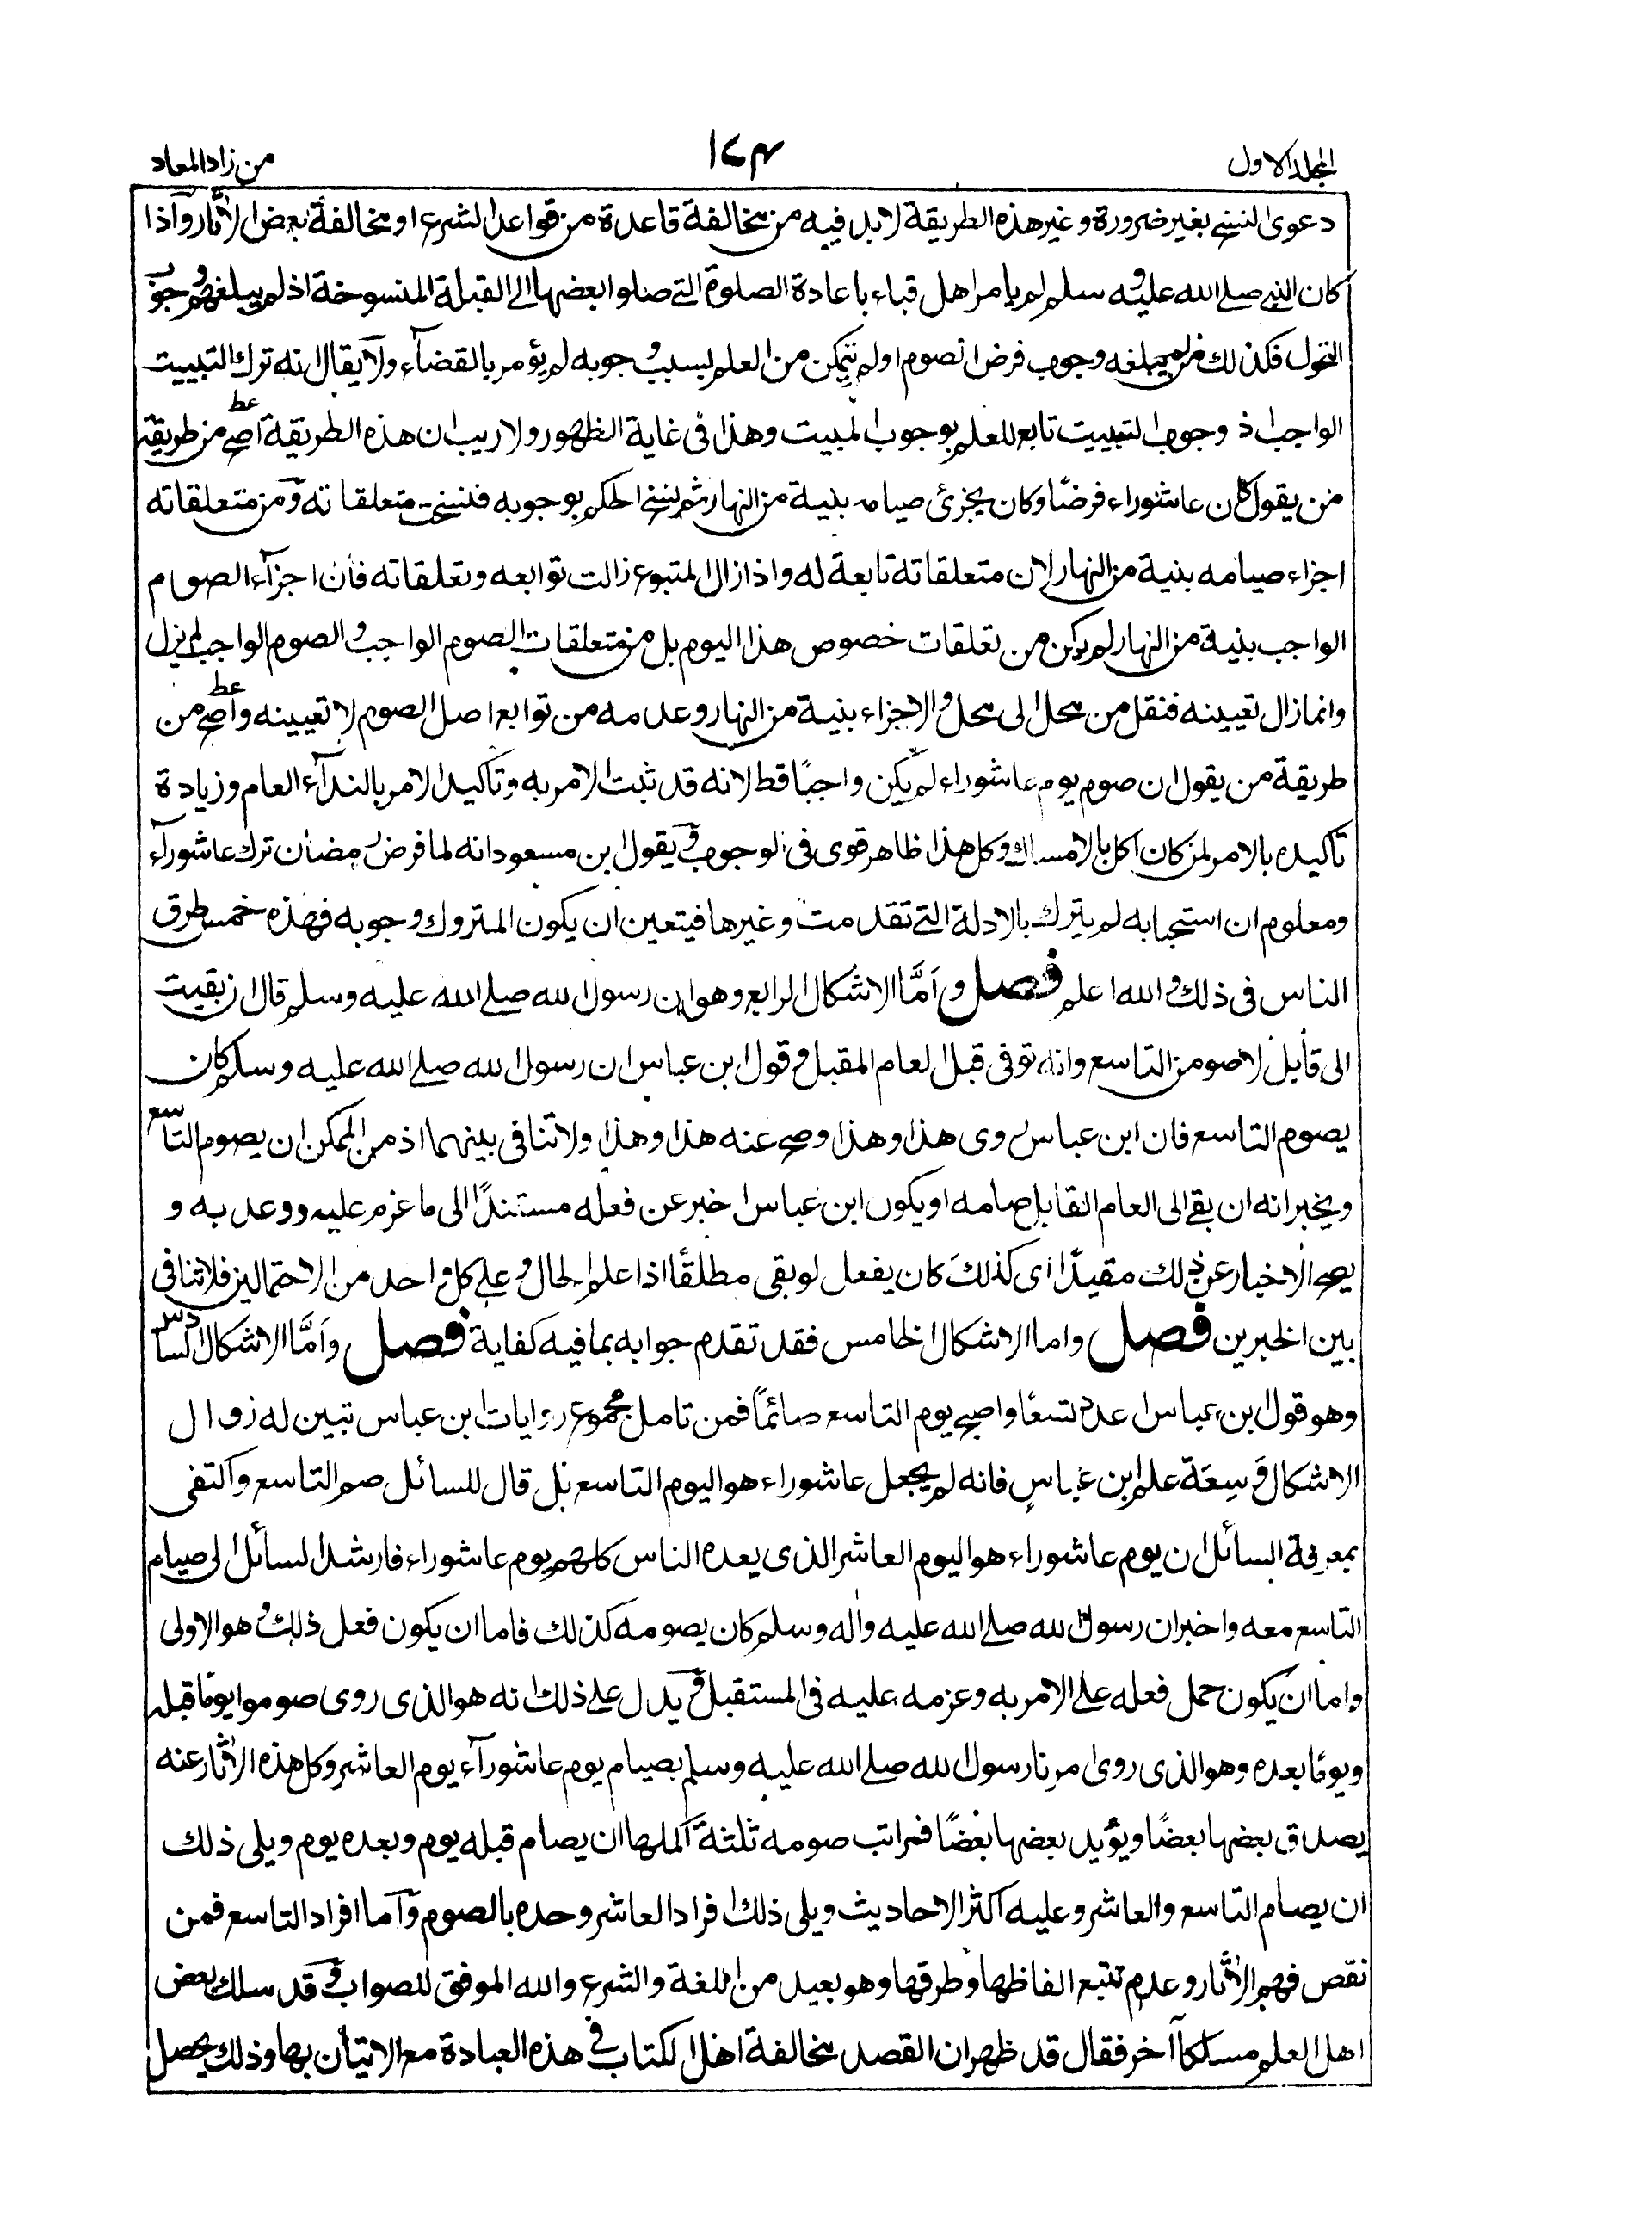 المجلد الاول
١٧٣
من زاد المعاد
دعوى النسخ بغير ضرورة وغير هذه الطريقة لا بد فيه من مخالفة قاعدة من قواعد الشرع او مخالفة بعض الآثار واذا
كان النبي صلى الله عليه وسلم لم يامر اهل قباء باعادة الصلوة التي صلوا بعضها الى القبلة المنسوخة اذ لم يبلغهم وجوب
التحول فكذلك من لم يبلغه وجوب فرض الصوم او لم يتمكن من العلم بسبب وجوبه لم يؤمر بالقضاء ولا يقال انه ترك التبييت
الواجب اذ وجوب التبييت تابع للعلم بوجوب المبيت وهذا فى غاية الظهور ولا ريب ان هذه الطريقة اصح من طريقة
من يقول كان عاشوراء فرضًا وكان يجزئ صيامه بنية من النهار ثم نسخ الحكم بوجوبه فنسخت متعلقاته ومن متعلقاته
اجزاء صيامه بنية من النهار لان متعلقاته تابعة له واذا زال المتبوع زالت توابعه وتعلقاته فان اجزآء الصوم
الواجب بنية من النهار لم يكن من تعلقات خصوص هذا اليوم بل من متعلقات الصوم الواجب والصوم الواجب لم يزل
وانما زال تعيينه فنقل من محل الى محل والاجزاء بنية من النهار وعدمه من توابع اصل الصوم لا تعيينه واصح من
طريقة من يقول ان صوم يوم عاشوراء لم يكن واجبًا قط لانه قد ثبت الامر به وتاكيد الامر بالندآء العام وزيادة
تاكيده بالامر لمن كان اكل بالامساك وكل هذا ظاهر قوى فى الوجوب ويقول ابن مسعود انه لما فرض رمضان ترك عاشورآء
ومعلوم ان استحبابه لم يترك بالادلة التي تقدمت وغيرها فيتعين ان يكون المتروك وجوبه فهذه خمس طرق
الناس فى ذلك والله اعلم فصل وَاَمَّا الاشكال الرابع وهو ان رسول الله صلى الله عليه وسلم قال لئن بقيت
الى قابل لاصومن التاسع وانه توفى قبل العام المقبل وقول ابن عباس ان رسول الله صلى الله عليه وسلم كان
يصوم التاسع فان ابن عباس روى هذا وهذا وصح عنه هذا وهذا ولا تنافى بينهما اذ من الممكن ان يصوم التاسع
ويخبر انه ان بقى الى العام القابل صامه او يكون ابن عباس اخبر عن فعله مستندًا الى ما عزم عليه ووعد به و
يصح الاخبار عن ذلك مقيدًا اى كذلك كان يفعل لو بقى مطلقًا اذا علم الحال وعلى كل واحد من الاحتمالين فلا تنافى
بين الخبرين فصل واما الاشكال الخامس فقد تقدم جوابه بما فيه كفاية فصل وَاَمَّا الاشكال السادس
وهو قول ابن عباس اعدد تسعًا واصبح يوم التاسع صائمًا فمن تامل مجموع روايات ابن عباس تبين له زوال
الاشكال وَسِعَة علم ابن عباسٍ فانه لم يجعل عاشوراء هو اليوم التاسع بل قال للسائل صم التاسع واكتفى
بمعرفة السائل ان يوم عاشوراء هو اليوم العاشر الذى يعده الناس كلهم يوم عاشوراء فارشد السائل الى صيام
التاسع معه واخبر ان رسول الله صلى الله عليه واله وسلم كان يصومه كذلك فاما ان يكون فعل ذلك وهو الاولى
واما ان يكون حمل فعله على الامر به وعزمه عليه فى المستقبل ويدل على ذلك انه هو الذى روى صوموا يومًا قبله
ويومًا بعده وهو الذى روى امرنا رسول الله صلى الله عليه وسلم بصيام يوم عاشورآء يوم العاشر وكل هذه الآثار عنه
يصدق بعضها بعضًا ويؤيد بعضها بعضًا فمراتب صومه ثلثة اكملها ان يصام قبله يوم وبعده يوم ويلى ذلك
ان يصام التاسع والعاشر وعليه اكثر الاحاديث ويلى ذلك افراد العاشر وحده بالصوم وَاما افراد التاسع فمن
نقص فهم الآثار وعدم تتبع الفاظها وطرقها وهو بعيد من اللغة والشرع والله الموفق للصواب وقد سلك بعض
اهل العلم مسلكًا آخر فقال قد ظهر ان القصد مخالفة اهل الكتاب فى هذه العبادة مع الاتيان بها وذلك يحصل